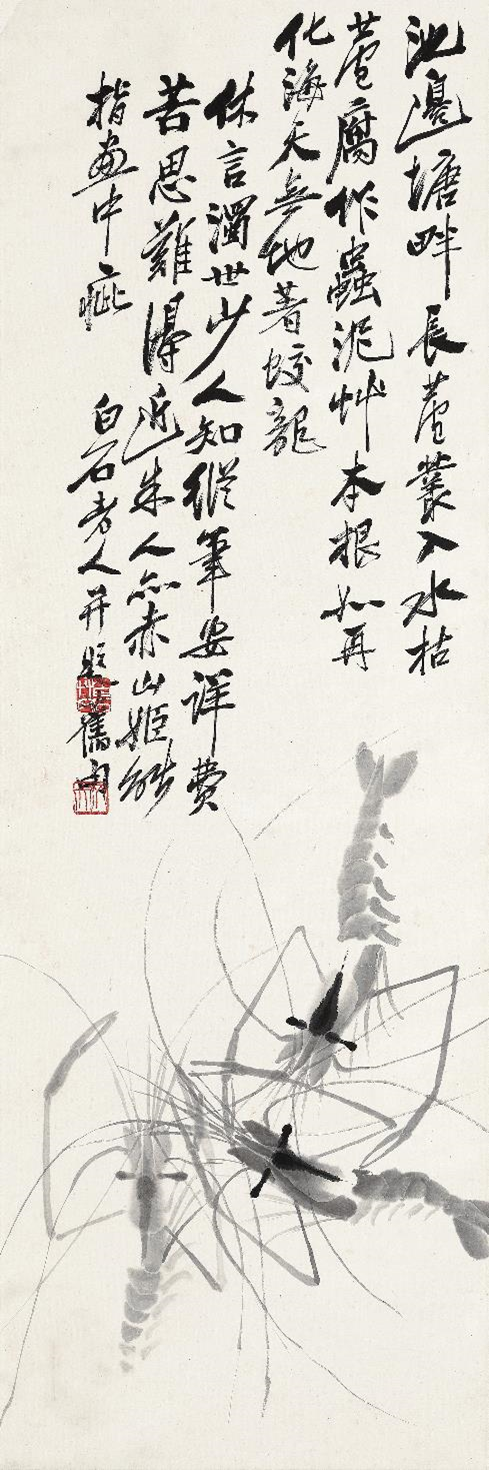 池邊塘畔長蘆叢入水枯
蘆腐作蟲泥艸本根如再
化海天無地著蛟龍
休言濁世少人知縱筆安詳費
苦思難得近朱人亦赤山姬能
指畫中疵 白石老人并題舊句